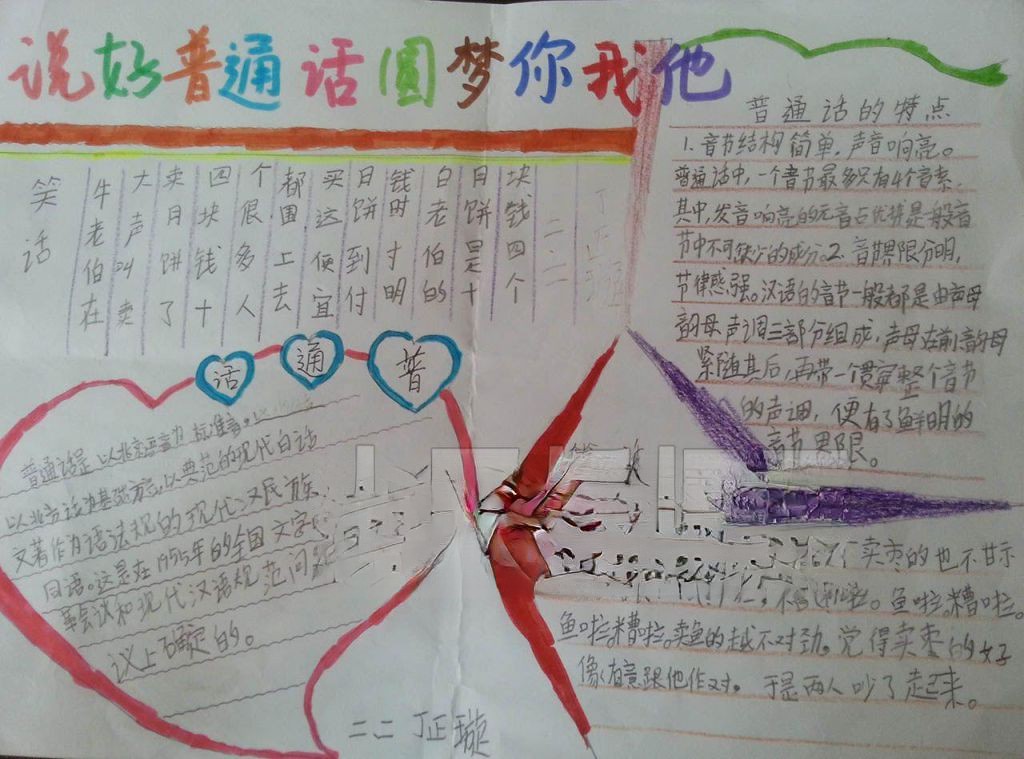 说好普通话圆梦你我他
笑话
牛老伯在
大声叫卖
卖月饼了
四块钱十
个很多人
都围上去
买这便宜
月饼到付
钱时才明
白老伯的
月饼是十
块钱四个
二二
丁正
普通话
普通话是以北京语音为标准音。
以北方话为基础方言,以典范的现代白话
文著作为语法规的现代汉民族
日语。这是在1955年的全国文字
革会议和现代汉语规范问
议上确定的。
普通话的特点
1.音节结构简单,声音响亮。
普通话中,一个音节最多只有4个音素,
其中,发音响亮的元音占优势是一般音
节中不可缺少的成分。2.音节界限分明,
节律感强。汉语的音节一般都是由声母
韵母声调三部分组成,声母在前韵母
紧随其后,再带一个贯穿整个音节
的声调,便有了鲜明的
音节界限。
卖枣的也不甘示
鱼啦糟啦。
鱼啦糟啦。卖鱼的越不对劲。觉得卖枣的好
像有意跟他作对。于是两人吵了起来。
二二 丁正璇